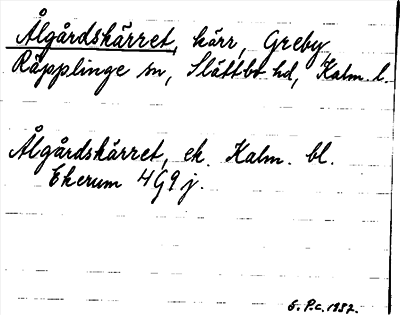 Ålgårdskärret, kärr, Greby
Räpplinge sn, Slättbo hd, Kalm. l.
Ålgårdskärret, ek. Kalm. bl.
Ekerum 4G9j.
G. P:c. 1957.